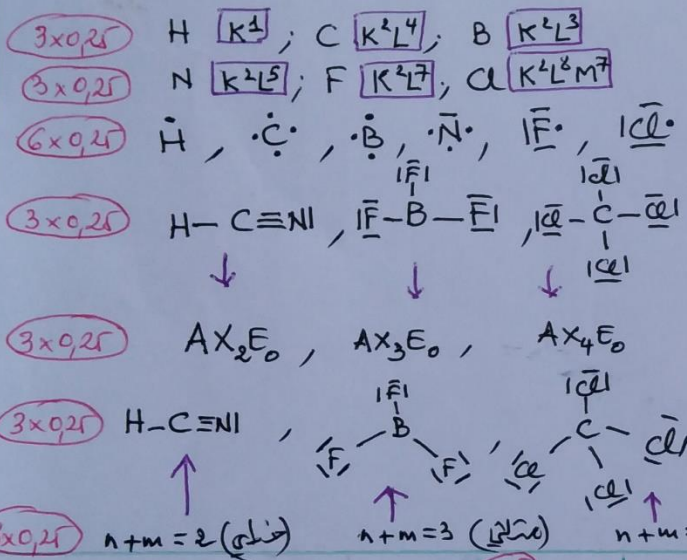 3×0,25 H K¹ ; C K²L⁴ ; B K²L³
3×0,25 N K²L⁵ ; F K²L⁷ ; Cl K²L⁸M⁷
6×0,25 H , C , B , N , F , Cl
F Cl
3×0,25 H–C≡N| , |F–B–F| , |Cl–C–Cl|
|Cl|
3×0,25 AX₂E₀ , AX₃E₀ , AX₄E₀
|F| |Cl|
3×0,25 H–C≡N| , B , C Cl
F F Cl |Cl|
×0,25 n+m=2 (خطي) n+m=3 (مثلثي) n+m=